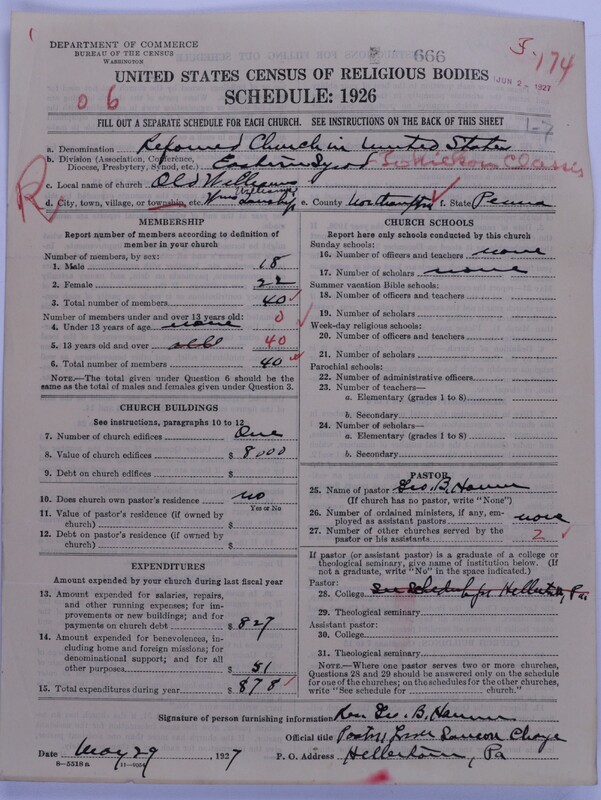 DEPARTMENT OF COMMERCE
BUREAU OF THE CENSUS
WASHINGTON
666
J-174
JUN 2 - 1927
UNITED STATES CENSUS OF RELIGIOUS BODIES
0 6
SCHEDULE: 1926
FILL OUT A SEPARATE SCHEDULE FOR EACH CHURCH. SEE INSTRUCTIONS ON THE BACK OF THIS SHEET
1-7
a. Denomination Reformed Church in United States
b. Division (Association, Conference,
Diocese, Presbytery, Synod, etc.) Eastern Synod Classes
R
c. Local name of church Old Williams
d. City, town, village, or township, etc. Wms Township (Williams) e. County Northampton f. State Penna
MEMBERSHIP
Report number of members according to definition of
member in your church
Number of members, by sex:
1. Male 18
2. Female 22
3. Total number of members 40
Number of members under and over 13 years old: 0
4. Under 13 years of age none
5. 13 years old and over all 40
6. Total number of members 40
NOTE.—The total given under Question 6 should be
the same as the total of males and females given under Question 3.
CHURCH BUILDINGS
See instructions, paragraphs 10 to 12
7. Number of church edifices One
8. Value of church edifices $ 8000
9. Debt on church edifices $
10. Does church own pastor's residence no
Yes or No
11. Value of pastor's residence (if owned by
church) $
12. Debt on pastor's residence (if owned by
church) $
EXPENDITURES
Amount expended by your church during last fiscal year
13. Amount expended for salaries, repairs,
and other running expenses; for im-
provements or new buildings; and for
payments on church debt $ 827
14. Amount expended for benevolences, in-
cluding home and foreign missions; for
denominational support; and for all
other purposes $ 51
15. Total expenditures during year $ 878
CHURCH SCHOOLS
Report here only schools conducted by this church
Sunday schools:
16. Number of officers and teachers none
17. Number of scholars none
Summer vacation Bible schools:
18. Number of officers and teachers
19. Number of scholars
Week-day religious schools:
20. Number of officers and teachers
21. Number of scholars
Parochial schools:
22. Number of administrative officers
23. Number of teachers—
a. Elementary (grades 1 to 8)
b. Secondary
24. Number of scholars—
a. Elementary (grades 1 to 8)
b. Secondary
PASTOR
25. Name of pastor Geo. B. Hamm
(If church has no pastor, write "None")
26. Number of ordained ministers, if any, em-
ployed as assistant pastors none
27. Number of other churches served by the
pastor or his assistants 2
If pastor (or assistant pastor) is a graduate of a college or
theological seminary, give name of institution below. (If
not a graduate, write "No" in the space indicated.)
Pastor:
28. College see schedule for Hellertown, Pa.
29. Theological seminary
Assistant pastor:
30. College
31. Theological seminary
NOTE.—Where one pastor serves two or more churches,
Questions 28 and 29 should be answered only on the schedule
for one of the churches; on the schedules for the other churches,
write "See schedule for church."
Signature of person furnishing information Rev. Geo. B. Hamm
Official title Pastor, Lower Saucon Charge
Date May 29 1927 P. O. Address Hellertown, Pa
8-5318 a